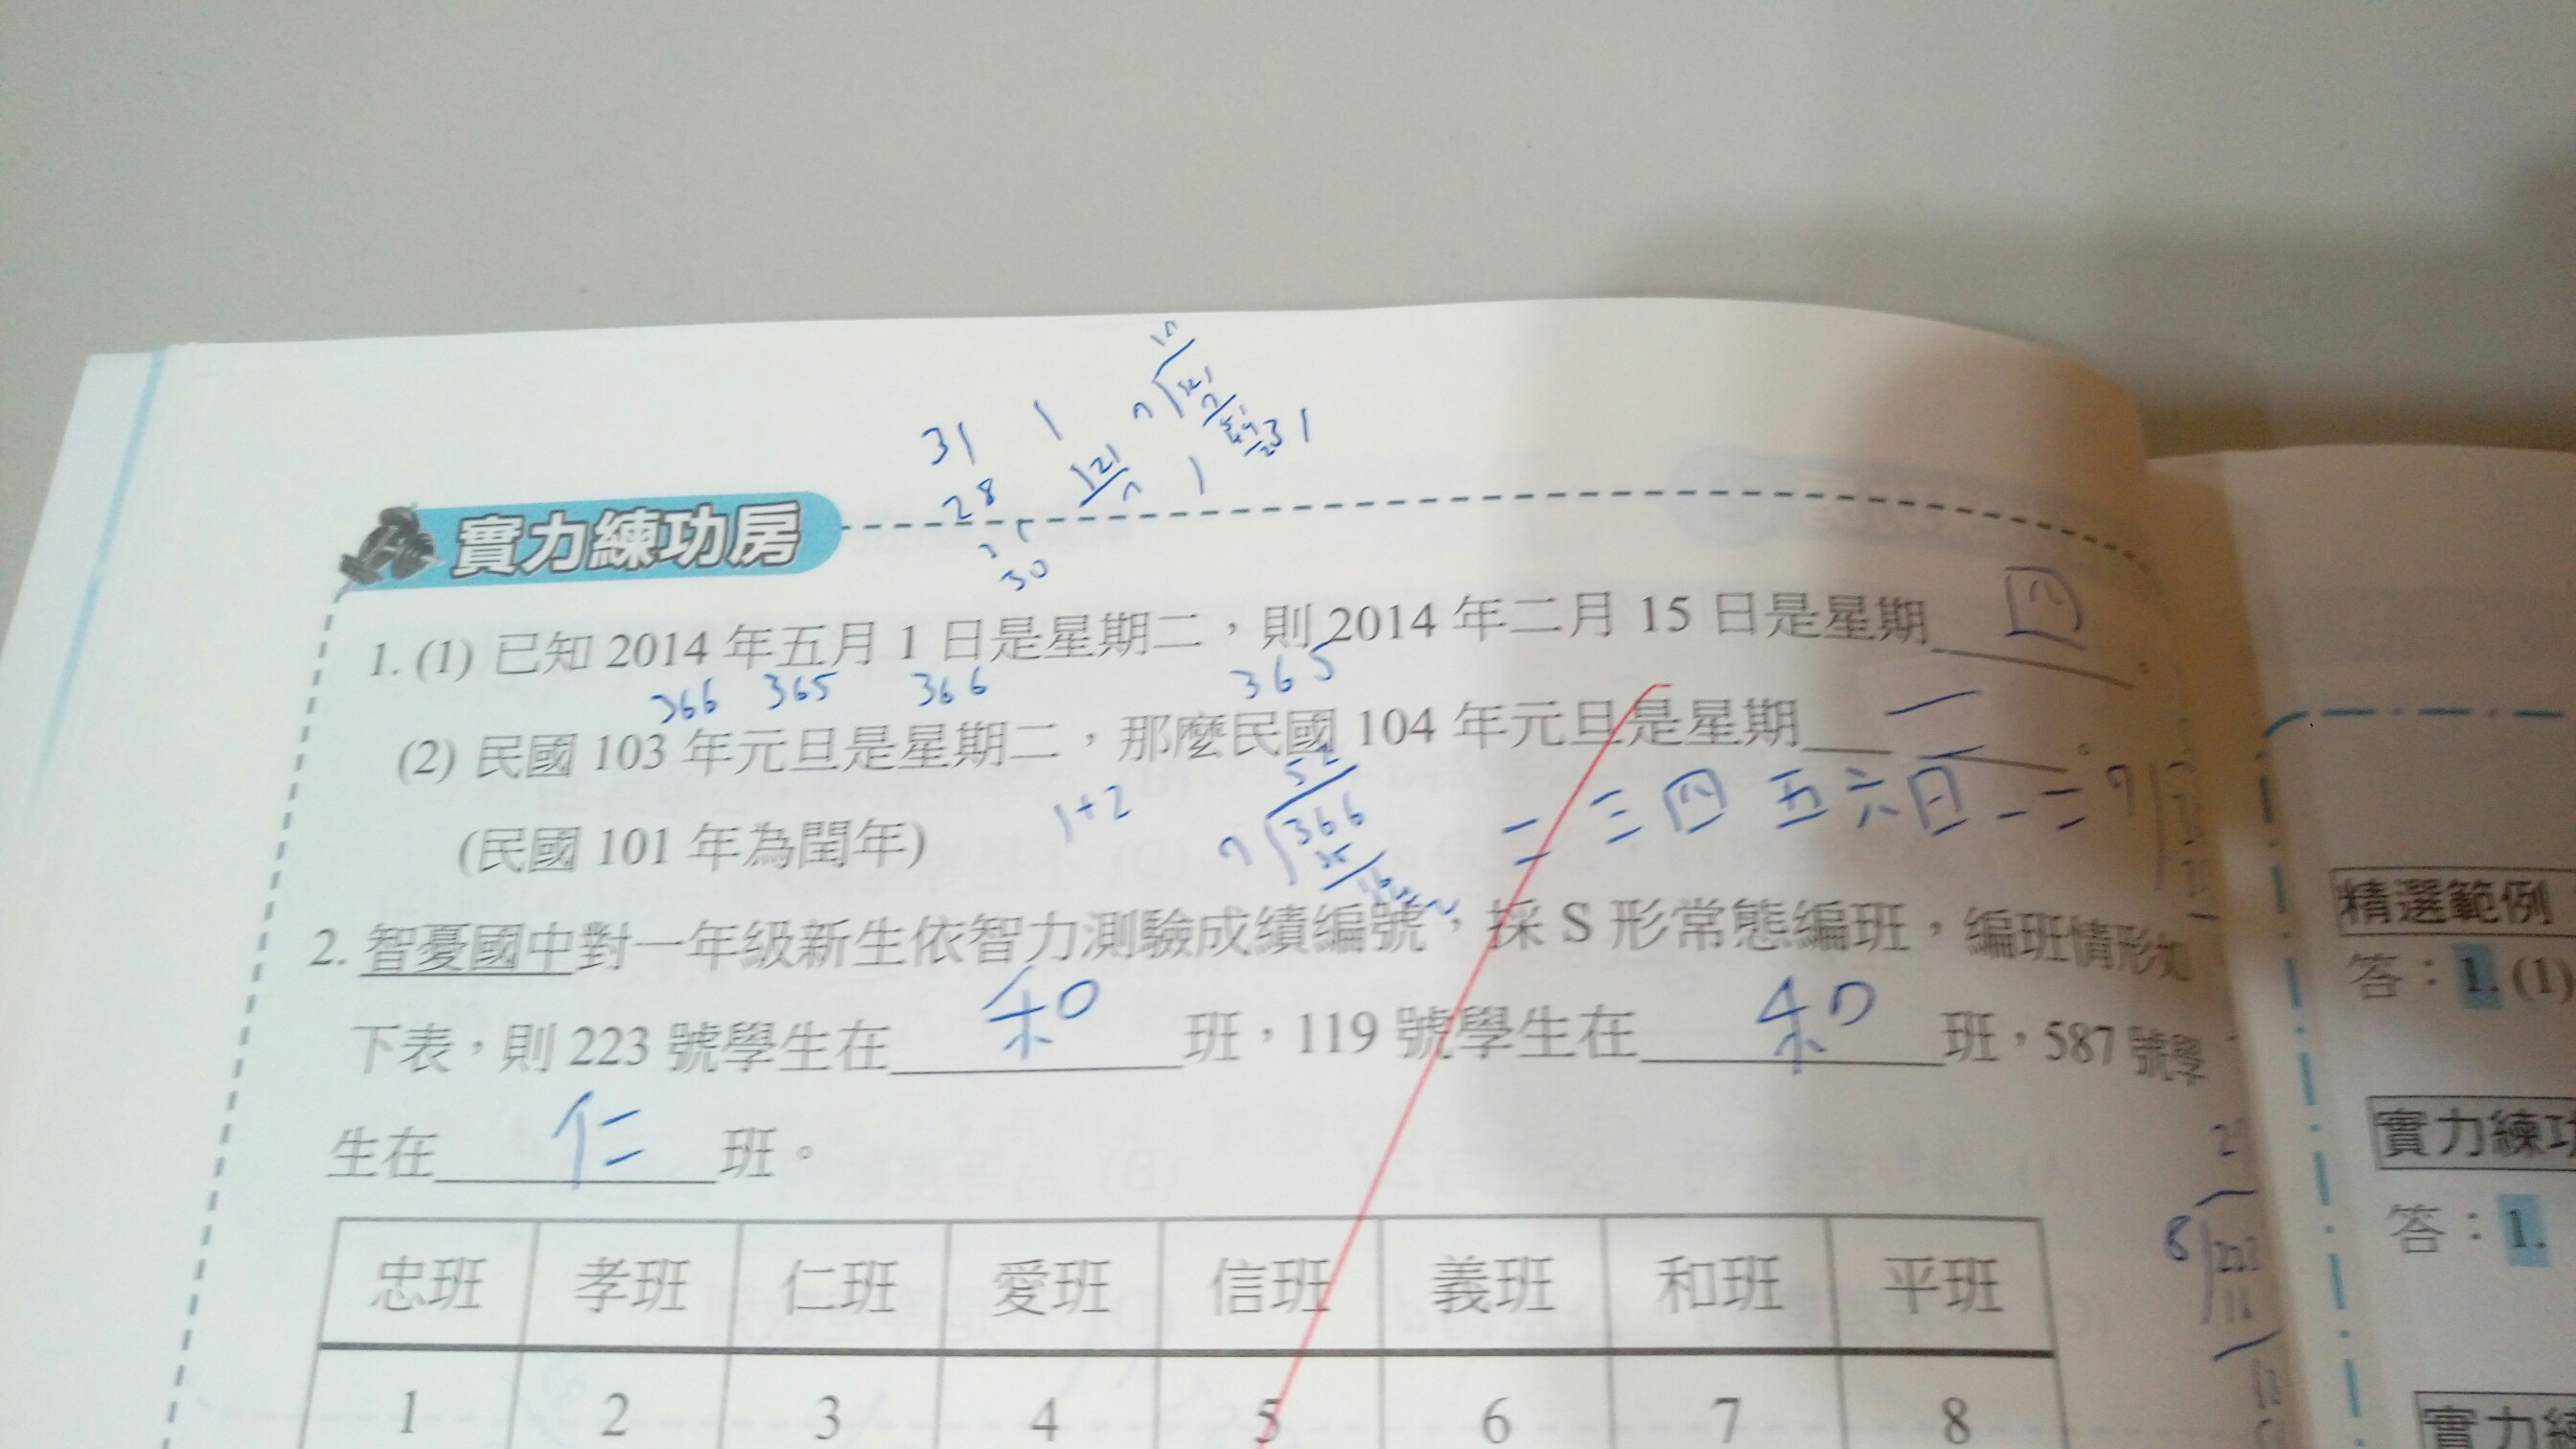 31 1
28 121 7 1 31
30
實力練功房
1. (1) 已知 2014 年五月 1 日是星期二，則 2014 年二月 15 日是星期 四 。
366 365 366 365
(2) 民國 103 年元旦是星期二，那麼民國 104 年元旦是星期 一 。
(民國 101 年為閏年) 1+2 7 366 52 二 三 四 五 六 日 一 二
2. 智憂國中對一年級新生依智力測驗成績編號，採 S 形常態編班，編班情形如
下表，則 223 號學生在 和 班，119 號學生在 和 班，587 號學
生在 仁 班。
忠班 孝班 仁班 愛班 信班 義班 和班 平班
1 2 3 4 5 6 7 8
精選範例
答：1. (1)
實力練功
答：1.
實力練